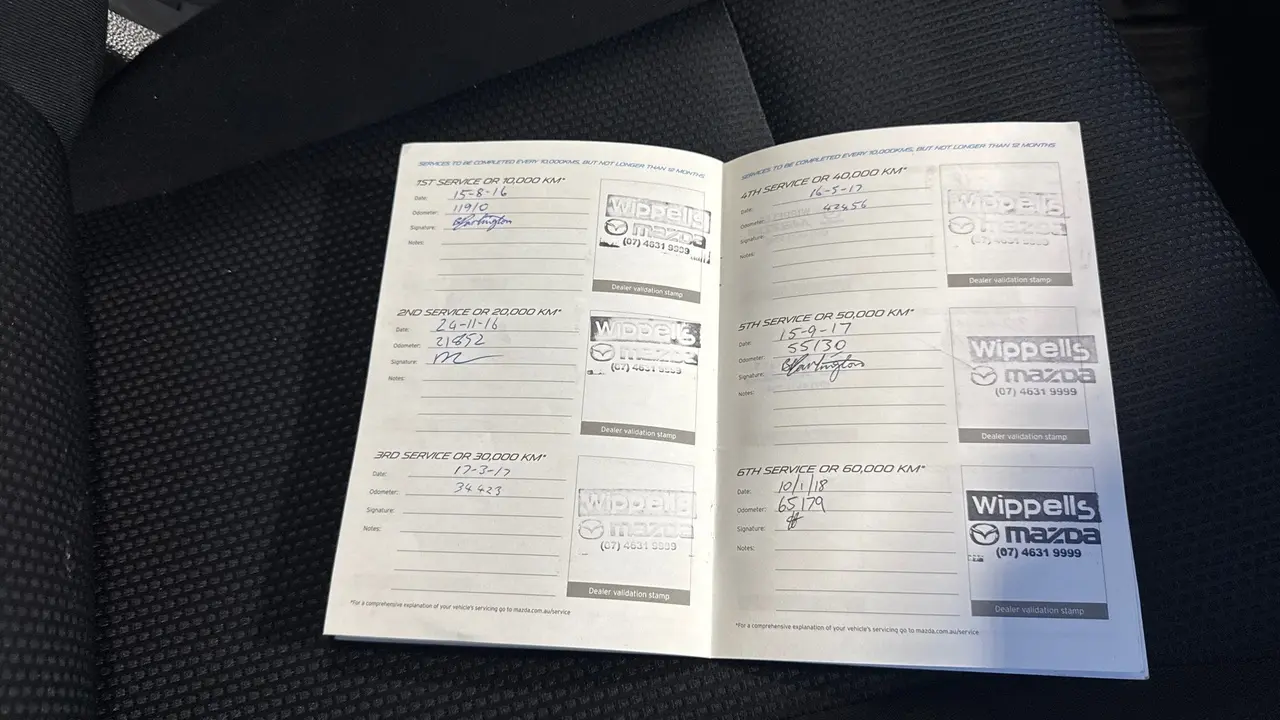 SERVICES TO BE COMPLETED EVERY 10,000KMS, BUT NOT LONGER THAN 12 MONTHS
1ST SERVICE OR 10,000 KM*
Date: 15-8-16
Odometer: 11910
Signature:
Notes:
Wippells
mazda
(07) 4631 9999
Dealer validation stamp
2ND SERVICE OR 20,000 KM*
Date: 24-11-16
Odometer: 21852
Signature:
Notes:
Wippells
mazda
(07) 4631 9999
Dealer validation stamp
3RD SERVICE OR 30,000 KM*
Date: 17-3-17
Odometer: 34423
Signature:
Notes:
Wippells
mazda
(07) 4631 9999
Dealer validation stamp
*For a comprehensive explanation of your vehicle's servicing go to mazda.com.au/service
SERVICES TO BE COMPLETED EVERY 10,000KMS, BUT NOT LONGER THAN 12 MONTHS
4TH SERVICE OR 40,000 KM*
Date: 16-5-17
Odometer: 42456
Signature:
Notes:
Wippells
mazda
(07) 4631 9999
Dealer validation stamp
5TH SERVICE OR 50,000 KM*
Date: 15-9-17
Odometer: 55130
Signature:
Notes:
Wippells
mazda
(07) 4631 9999
Dealer validation stamp
6TH SERVICE OR 60,000 KM*
Date: 10/1/18
Odometer: 65179
Signature:
Notes:
Wippells
mazda
(07) 4631 9999
Dealer validation stamp
*For a comprehensive explanation of your vehicle's servicing go to mazda.com.au/service